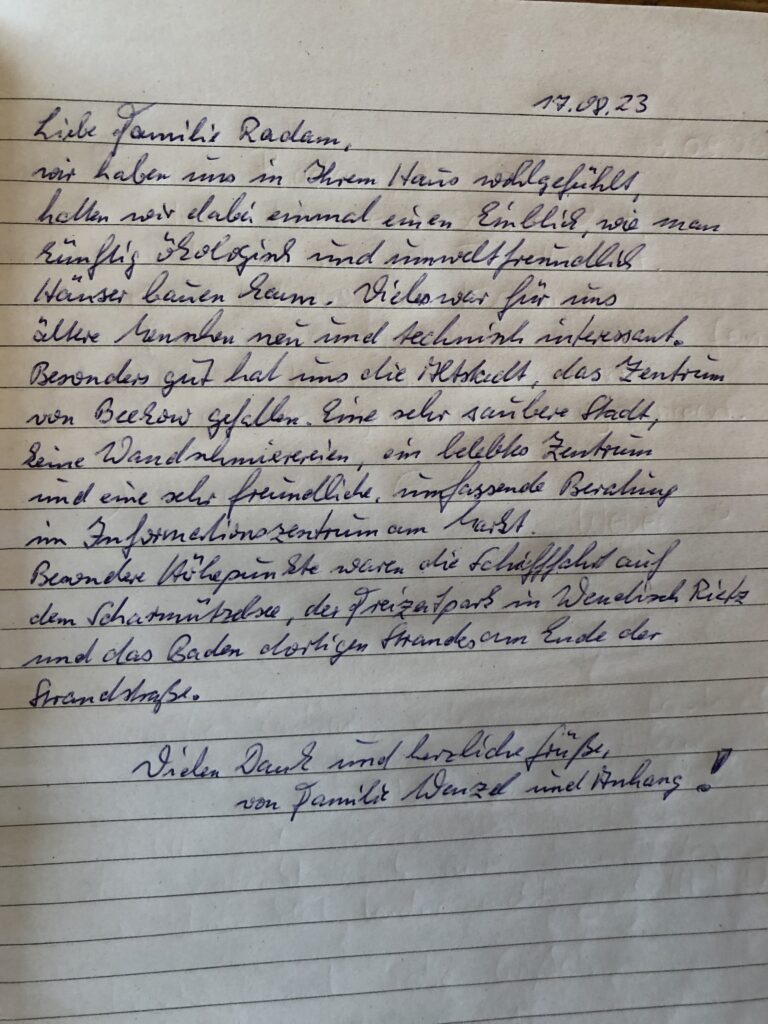 17.08.23
Liebe Familie Radam,
wir haben uns in Ihrem Haus wohlgefühlt,
hatten wir dabei einmal einen Einblick, wie man
künftig ökologisch und umweltfreundlich
Häuser bauen kann. Vieles war für uns
ältere Menschen neu und technisch interessant.
Besonders gut hat uns die Altstadt, das Zentrum
von Beeskow gefallen. Eine sehr saubere Stadt,
keine Wandschmierereien, ein belebtes Zentrum
und eine sehr freundliche, umfassende Beratung
im Informationszentrum am Markt.
Besondere Höhepunkte waren die Schifffahrt auf
dem Scharmützelsee, der Freizeitpark in Wendisch Rietz
und das Baden dortigen Strandes am Ende der
Strandstraße.
Vielen Dank und herzliche Grüße,
von Familie Wenzel und Anhang!